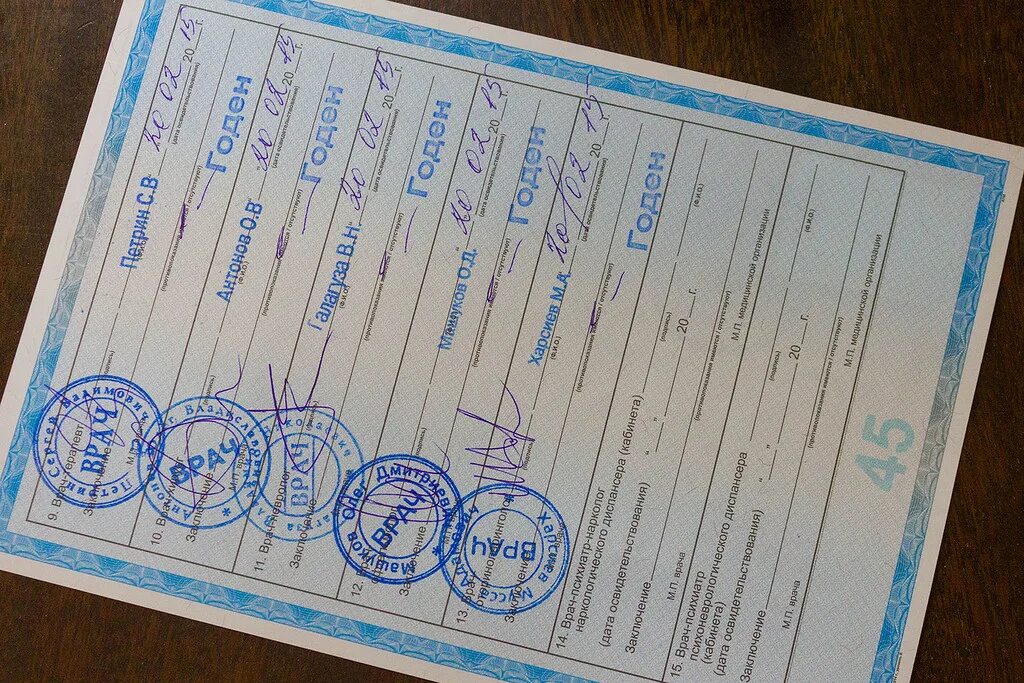 9. Врач-терапевт
Петрин С.В
20 02 20 15 г.
(Ф.И.О.)
(дата освидетельствования)
Заключение
(противопоказания имеются / отсутствуют)
Годен
М.П. врача
Петрин Сергей Вадимович
ВРАЧ
10. Врач
Антонов О.В
20 02 20 15 г.
(подпись)
(Ф.И.О.)
(дата освидетельствования)
Заключение
(противопоказания имеются / отсутствуют)
Годен
М.П. врача
ВРАЧ
11. Врач-невролог
Галагуза В.Н.
20 02 20 15 г.
(подпись)
(Ф.И.О.)
(дата освидетельствования)
Заключение
(противопоказания имеются / отсутствуют)
Годен
ВРАЧ
12. Врач
Машуков О.Д.
20 02 20 15 г.
(подпись)
(Ф.И.О.)
(дата освидетельствования)
Заключение
(противопоказания имеются / отсутствуют)
Годен
Машуков Олег Дмитриевич
ВРАЧ
13. Врач-
оториноларинголог
Харсиев М.А.
20 02 20 15 г.
(подпись)
(Ф.И.О.)
(дата освидетельствования)
Заключение
(противопоказания имеются / отсутствуют)
Годен
Харсиев
ВРАЧ
14. Врач-психиатр-нарколог
наркологического диспансера (кабинета)
(подпись)
(Ф.И.О.)
(дата освидетельствования) " " 20 г.
Заключение
(противопоказания имеются / отсутствуют)
М.П. врача
М.П. медицинской организации
15. Врач-психиатр
психоневрологического диспансера
(кабинета)
(подпись)
(Ф.И.О.)
(дата освидетельствования) " " 20 г.
Заключение
(противопоказания имеются / отсутствуют)
М.П. врача
М.П. медицинской организации
45